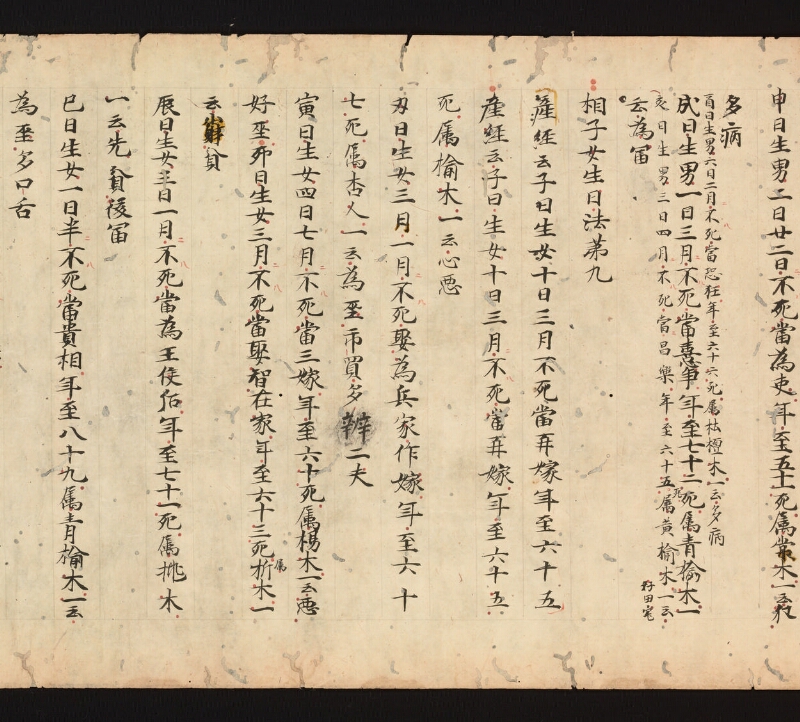 申日生男二日廿二日不死當為吏年至五十一死属棠木一云
多病
酉日生男六日二月不死當恐狂年至六十六死属枯檀木一云多病
戌日生男一日三月不死當憙事年至七十二死属青榆木一
亥日生男三日四月不死當昌樂年至六十五死属黄榆木一云
好田宅
云為冨
相子女生日法第九
産經云子日生女十日三月不死當再嫁年至六十五
産經云子日生女十日三月不死當再嫁年至六十五
死属榆木一云心悪
丑日生女三月一月不死娶為兵家作嫁年至六十
七死属杏又一云為巫市買多辭二夫
寅日生女四日七月不死當三嫁年至六十死属楊木一云悪
好巫卯日生女三月不死當娶智在家年至六十三死属析木一
云貧
辰日生女三日一月不死當為王侯后年至七十一死属桃木
一云先貧後冨
巳日生女一日半不死當貴相年至八十九属青榆木一云
為巫多口舌